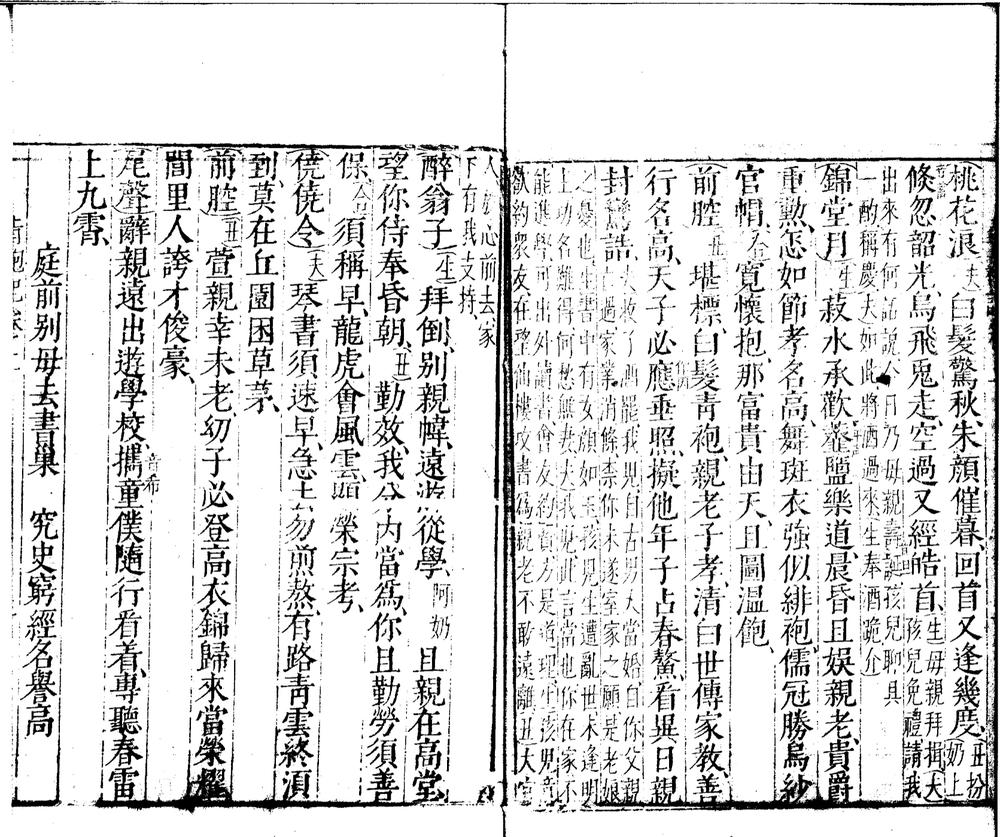 桃花浪夫白髮驚秋、朱顏催暮、回首又逢幾度、丑扮奶上
倏忽韶光、烏飛兎走、空過又經皓首、生母親拜揖夫孩兒免禮請我
出來有何話說今日乃母親壽誕孩兒聊具
一酌稱慶夫如此將酒過來生奉酒跪介
錦堂月生菽水承歡、虀鹽樂道、晨昏且娛親老、貴爵
重勲、怎如節孝名高、舞斑衣強似緋袍、儒冠勝烏紗
官帽、合寬懷抱、那富貴由天、且圖温飽、
前腔丑堪標、白髮青袍、親老子孝、清白世傳家教、善
行名高、天子必應垂照、擬他年子占春鰲、看異日親
封鸞誥、夫收了酒罷我兒自古男大當婚自你父親
過家業消條柰你未遂室家之願是老娘
之憂也生書中有女顏如玉孩兒生遭亂世未逢明
上功名難得何愁無夫我兒此言當也你在家不
能進學可出外讀書會友約賓方是道理生孩兒意
欲約衆友在望仙樓攻書爲親老不敢遠離丑大官
人放心前去家
下有我支持、
醉翁子生拜倒、别親幃、遠從學、阿奶且親在高堂
望你侍奉昏朝、丑勤效、我分内當爲、你且勤勞須善
保、合須稱早、龍虎會風雲、顯榮宗考、
僥僥令夫琴書須速早、急去勿煎熬、有路青雲終須
到、莫在丘園困草茅、
前腔丑萱親幸未老、幼子必登高、衣錦歸來當榮耀
閭里人誇才俊豪、
尾聲辭親遠出遊學校、攜童僕隨行看着、專聽春雷
上九霄、音希
庭前别母去書巢　究史窮經名譽高
青袍記卷上